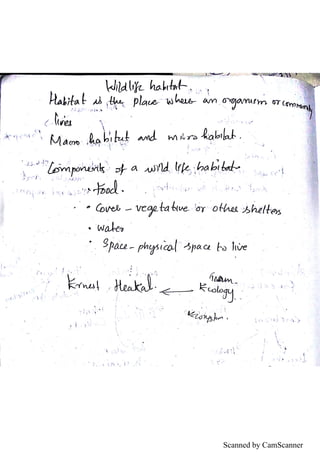 Wildlife habitat.
Habitat is the place where an organism or community
lives
Macro habitat and micro habitat.
Components of a wild life habitat
• Food.
• Cover - vegetative or other shelters
• Water
• Space - physical space to live
Ernest Heakal. ←
Ecology
Scanned by CamScanner